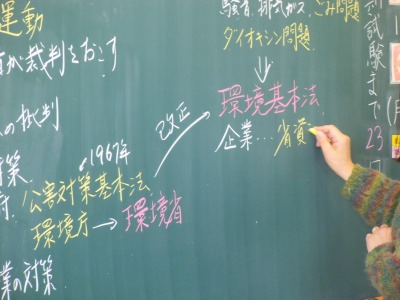 運動
が裁判をおこす
の批判
対策
1967年
公害対策基本法
環境庁→環境省
業の対策
改正
騒音、排気ガス、ごみ問題
ダイオキシン問題
環境基本法
企業…省資
試験まで
23